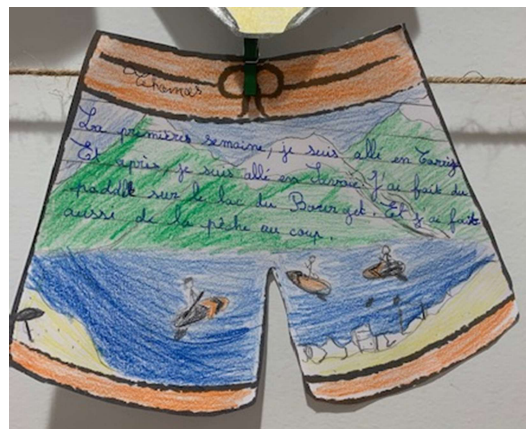 Thomas
La premières semaine, je suis allé en Corrèze
Et après, je suis allé en Savoie. J'ai fait du
paddle sur le lac du Bourget. Et j'ai fait
aussi de la pêche au coup.